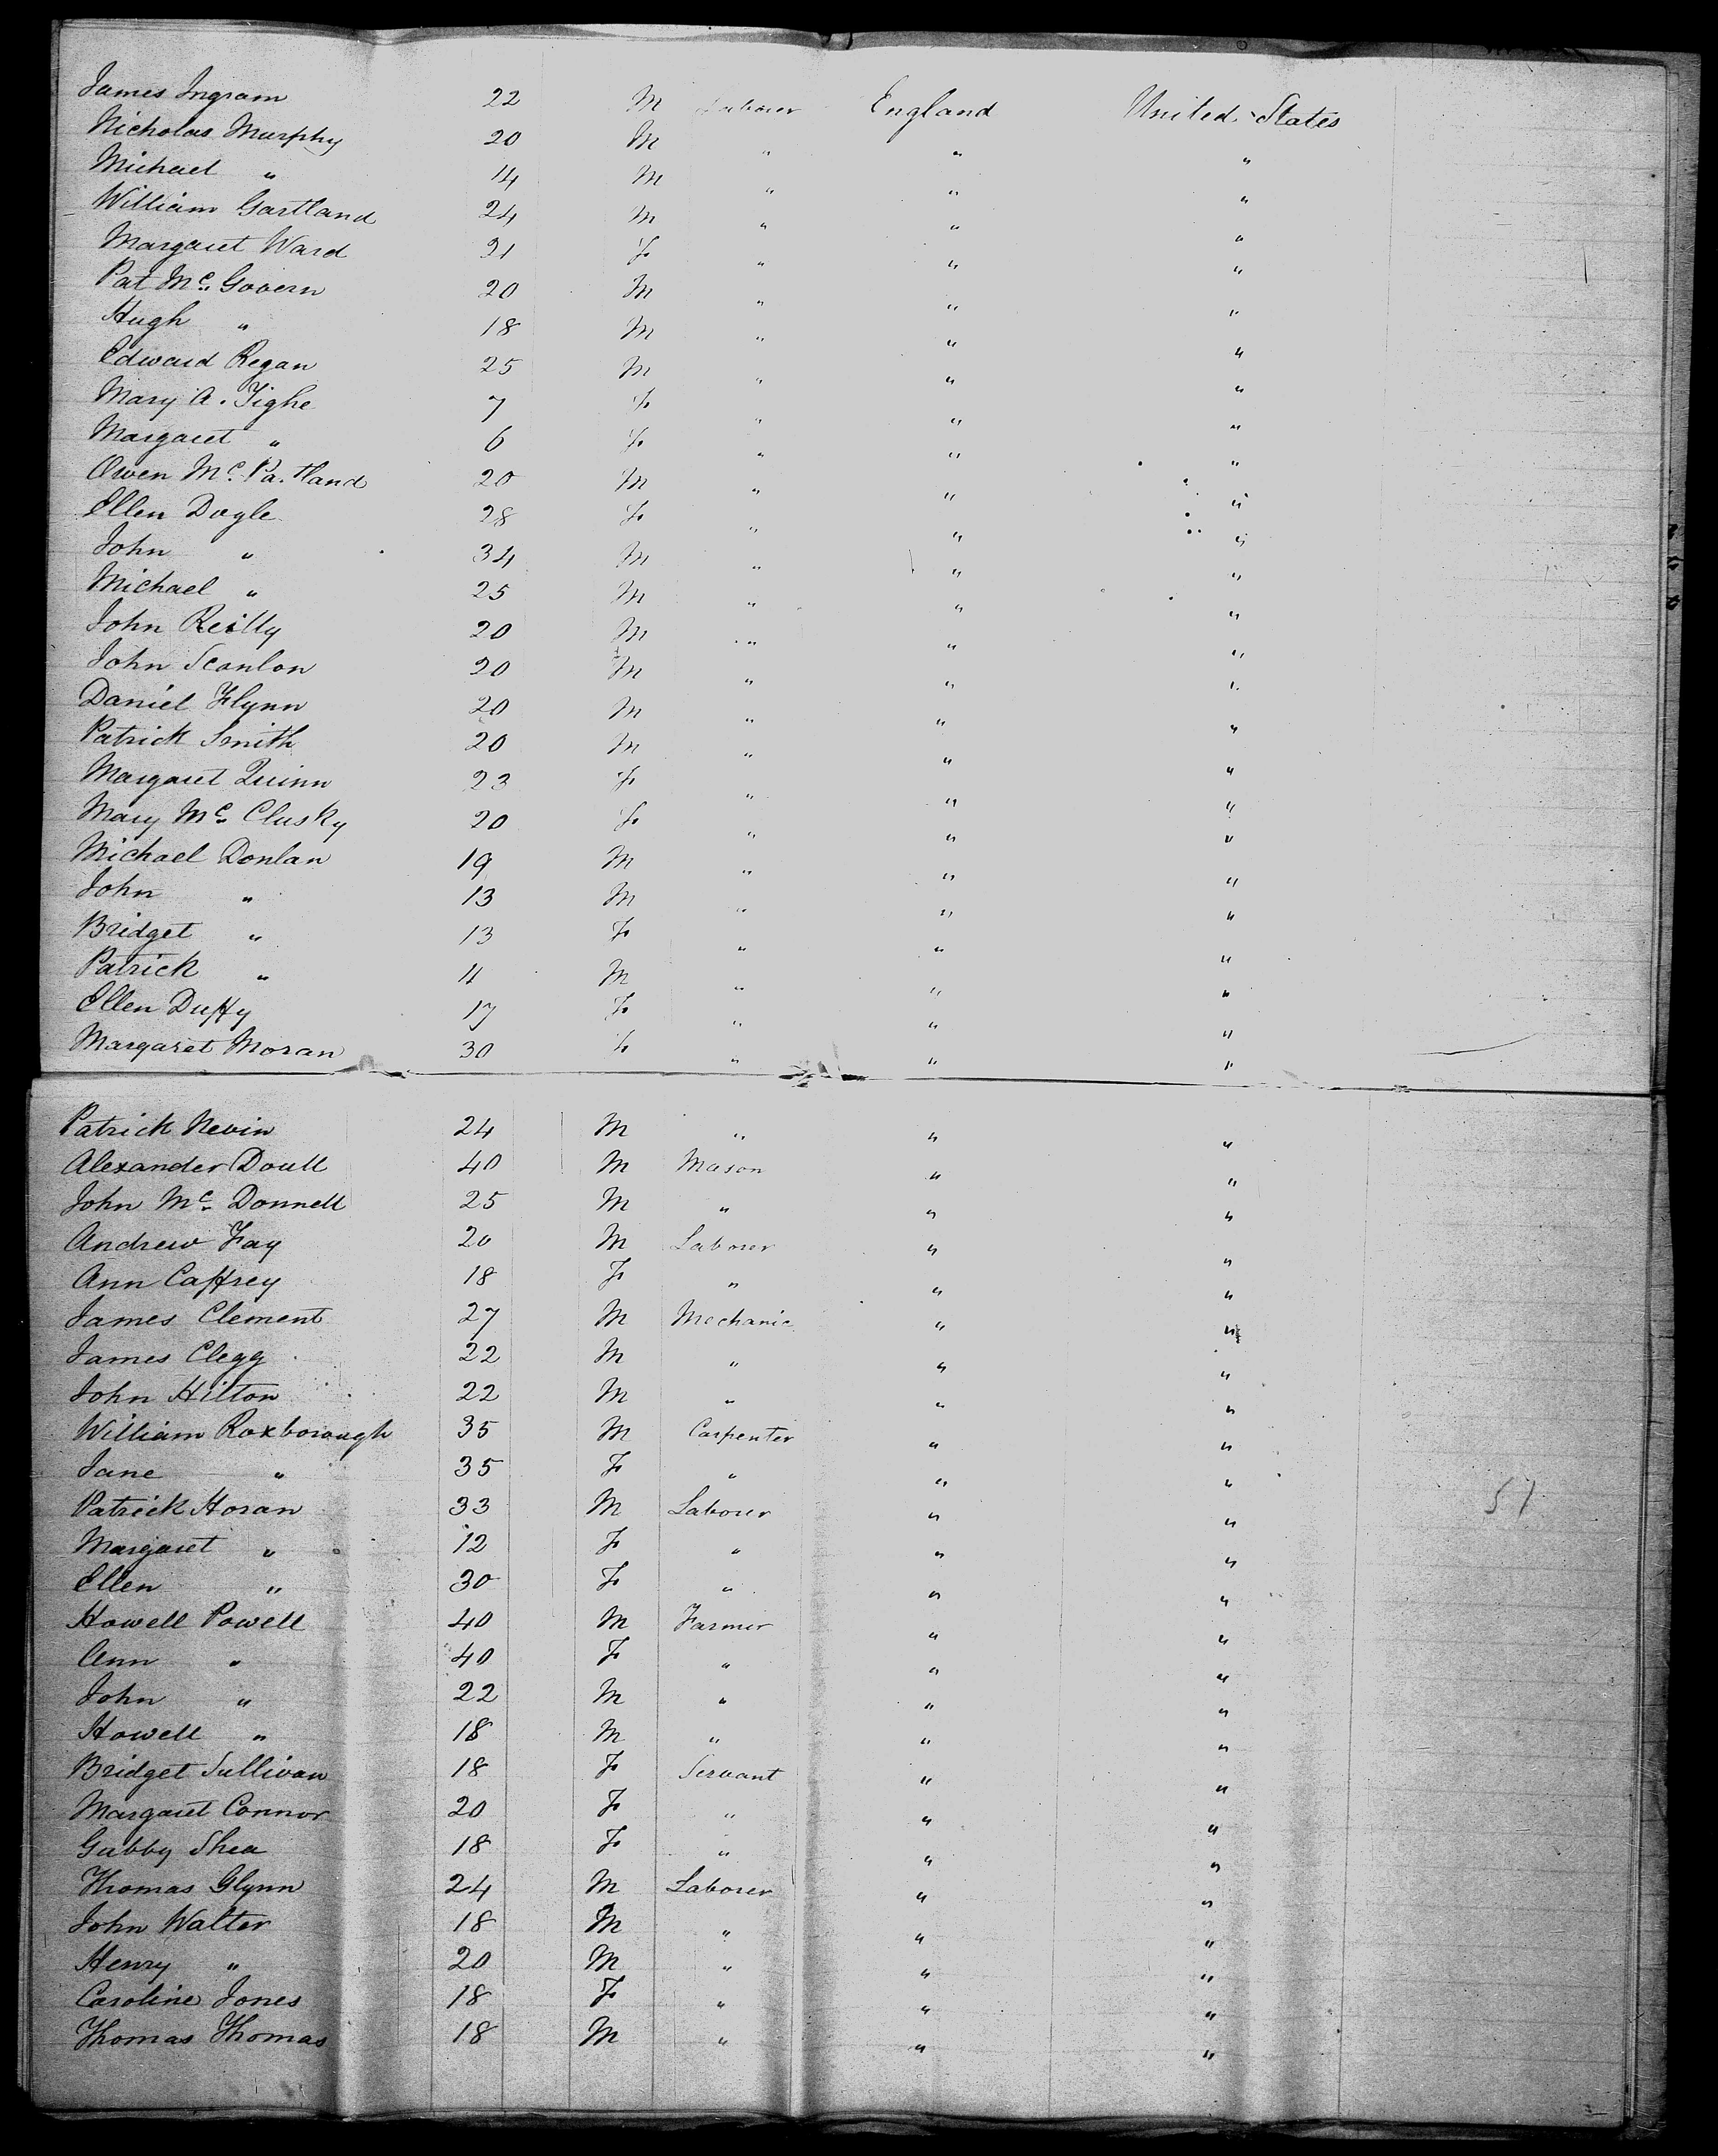 James Ingram 22 M Laborer England United States
Nicholas Murphy 20 M " " "
Michael " 14 M " " "
William Gartland 24 M " " "
Margaret Ward 21 F " " "
Pat Mc Govern 20 M " " "
Hugh " 18 M " " "
Edward Regan 25 M " " "
Mary A. Tighe 7 F " " "
Margaret " 6 F " " "
Owen Mc Partland 20 M " " "
Ellen Dogle 28 F " " "
John " 34 M " " "
Michael " 25 M " " "
John Reilly 20 M " " "
John Scanlon 20 M " " "
Daniel Flynn 20 M " " "
Patrick Smith 20 M " " "
Margaret Quinn 23 F " " "
Mary Mc Clusky 20 F " " "
Michael Donlan 19 M " " "
John " 13 M " " "
Bridget " 13 F " " "
Patrick " 11 M " " "
Ellen Duffy 17 F " " "
Margaret Moran 30 F " " "
Patrick Nevin 24 M " " "
Alexander Doull 40 M Mason " "
John Mc Donnell 25 M " " "
Andrew Fay 20 M Laborer " "
Ann Caffrey 18 F " " "
James Clement 27 M Mechanic " "
James Clegg 22 M " " "
John Hilton 22 M " " "
William Roxborough 35 M Carpenter " "
Jane " 35 F " " "
Patrick Horan 33 M Laborer " " 51
Margaret " 12 F " " "
Ellen " 30 F " " "
Howell Powell 40 M Farmer " "
Ann " 40 F " " "
John " 22 M " " "
Howell " 18 M " " "
Bridget Sullivan 18 F Servant " "
Margaret Connor 20 F " " "
Gubby Shea 18 F " " "
Thomas Glynn 24 M Laborer " "
John Walter 18 M " " "
Henry " 20 M " " "
Caroline Jones 18 F " " "
Thomas Thomas 18 M " " "